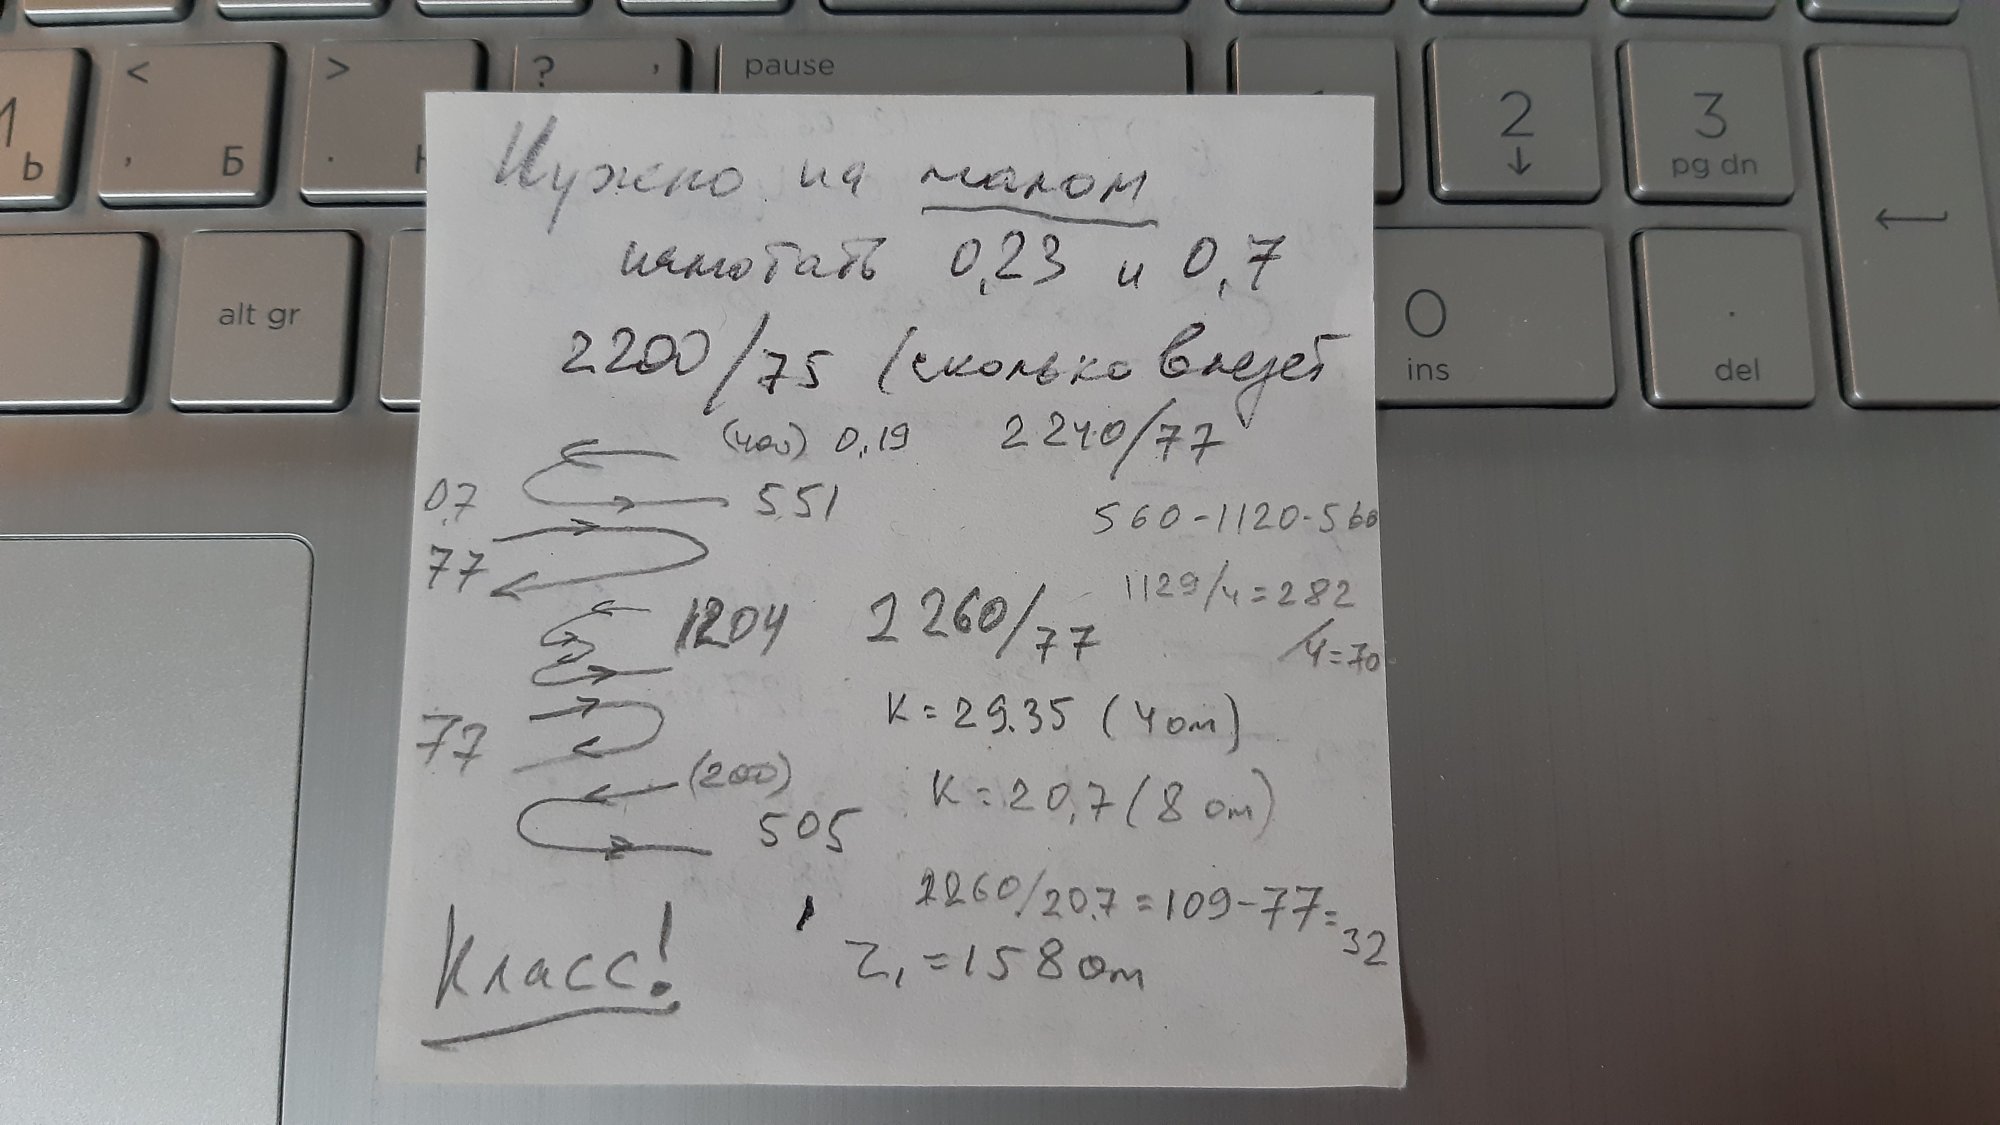 < > ? , pause
Ь , Б . 2 3 pg dn
alt gr 0 ins . del
Нужно на малом
намотать 0,23 и 0,7
2200/75 (сколько влезет
0,19 2240/77
0,7 551
560-1120-560
77
1204 2260/77 1129/4=282
/4=70
K=29.35 (4 ом)
77
(200) K=20,7 (8 ом)
505
2260/20.7=109-77=32
Класс! Z₁=158 ом